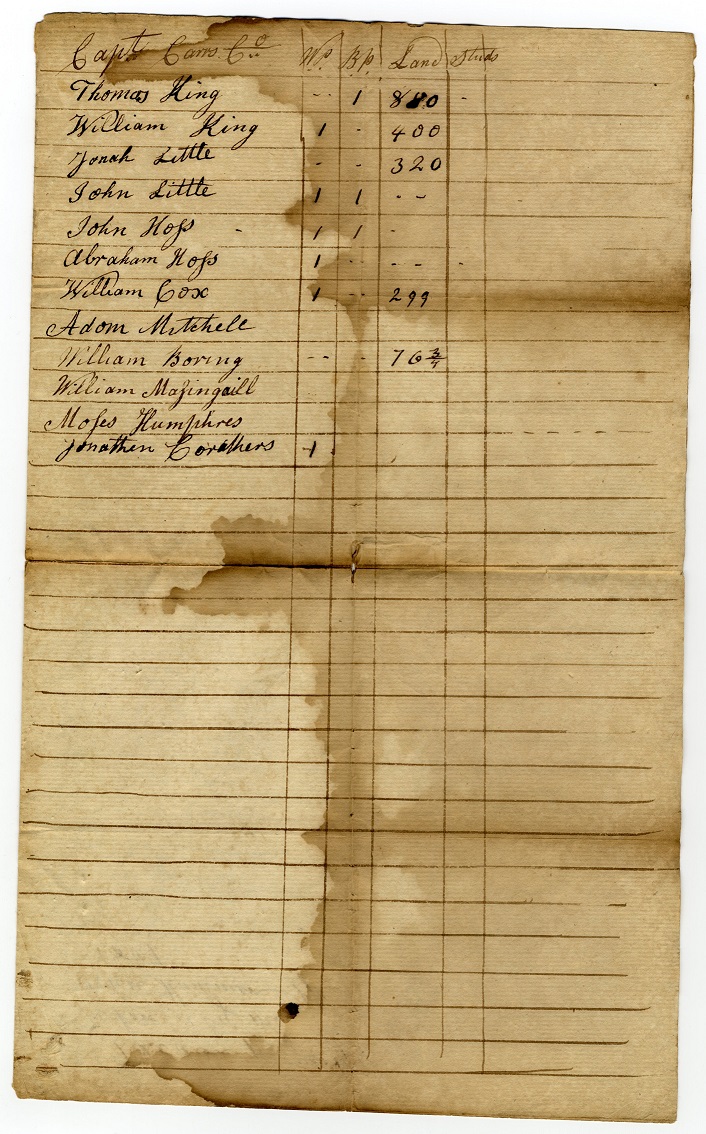 Capt Carrs Co W.P. B.P. Land Studs
Thomas King - - 1 880 -
William King 1 - 400
Jonah Little - - 320
John Little 1 1 - -
John Hoss - 1 1 -
Abraham Hoss 1 - - - - -
William Cox 1 - - 299
Adom Mitchell
William Boring - - - 76 3/4
William Mazingaill
Moses Humphres - - -
Jonathen Corathers 1